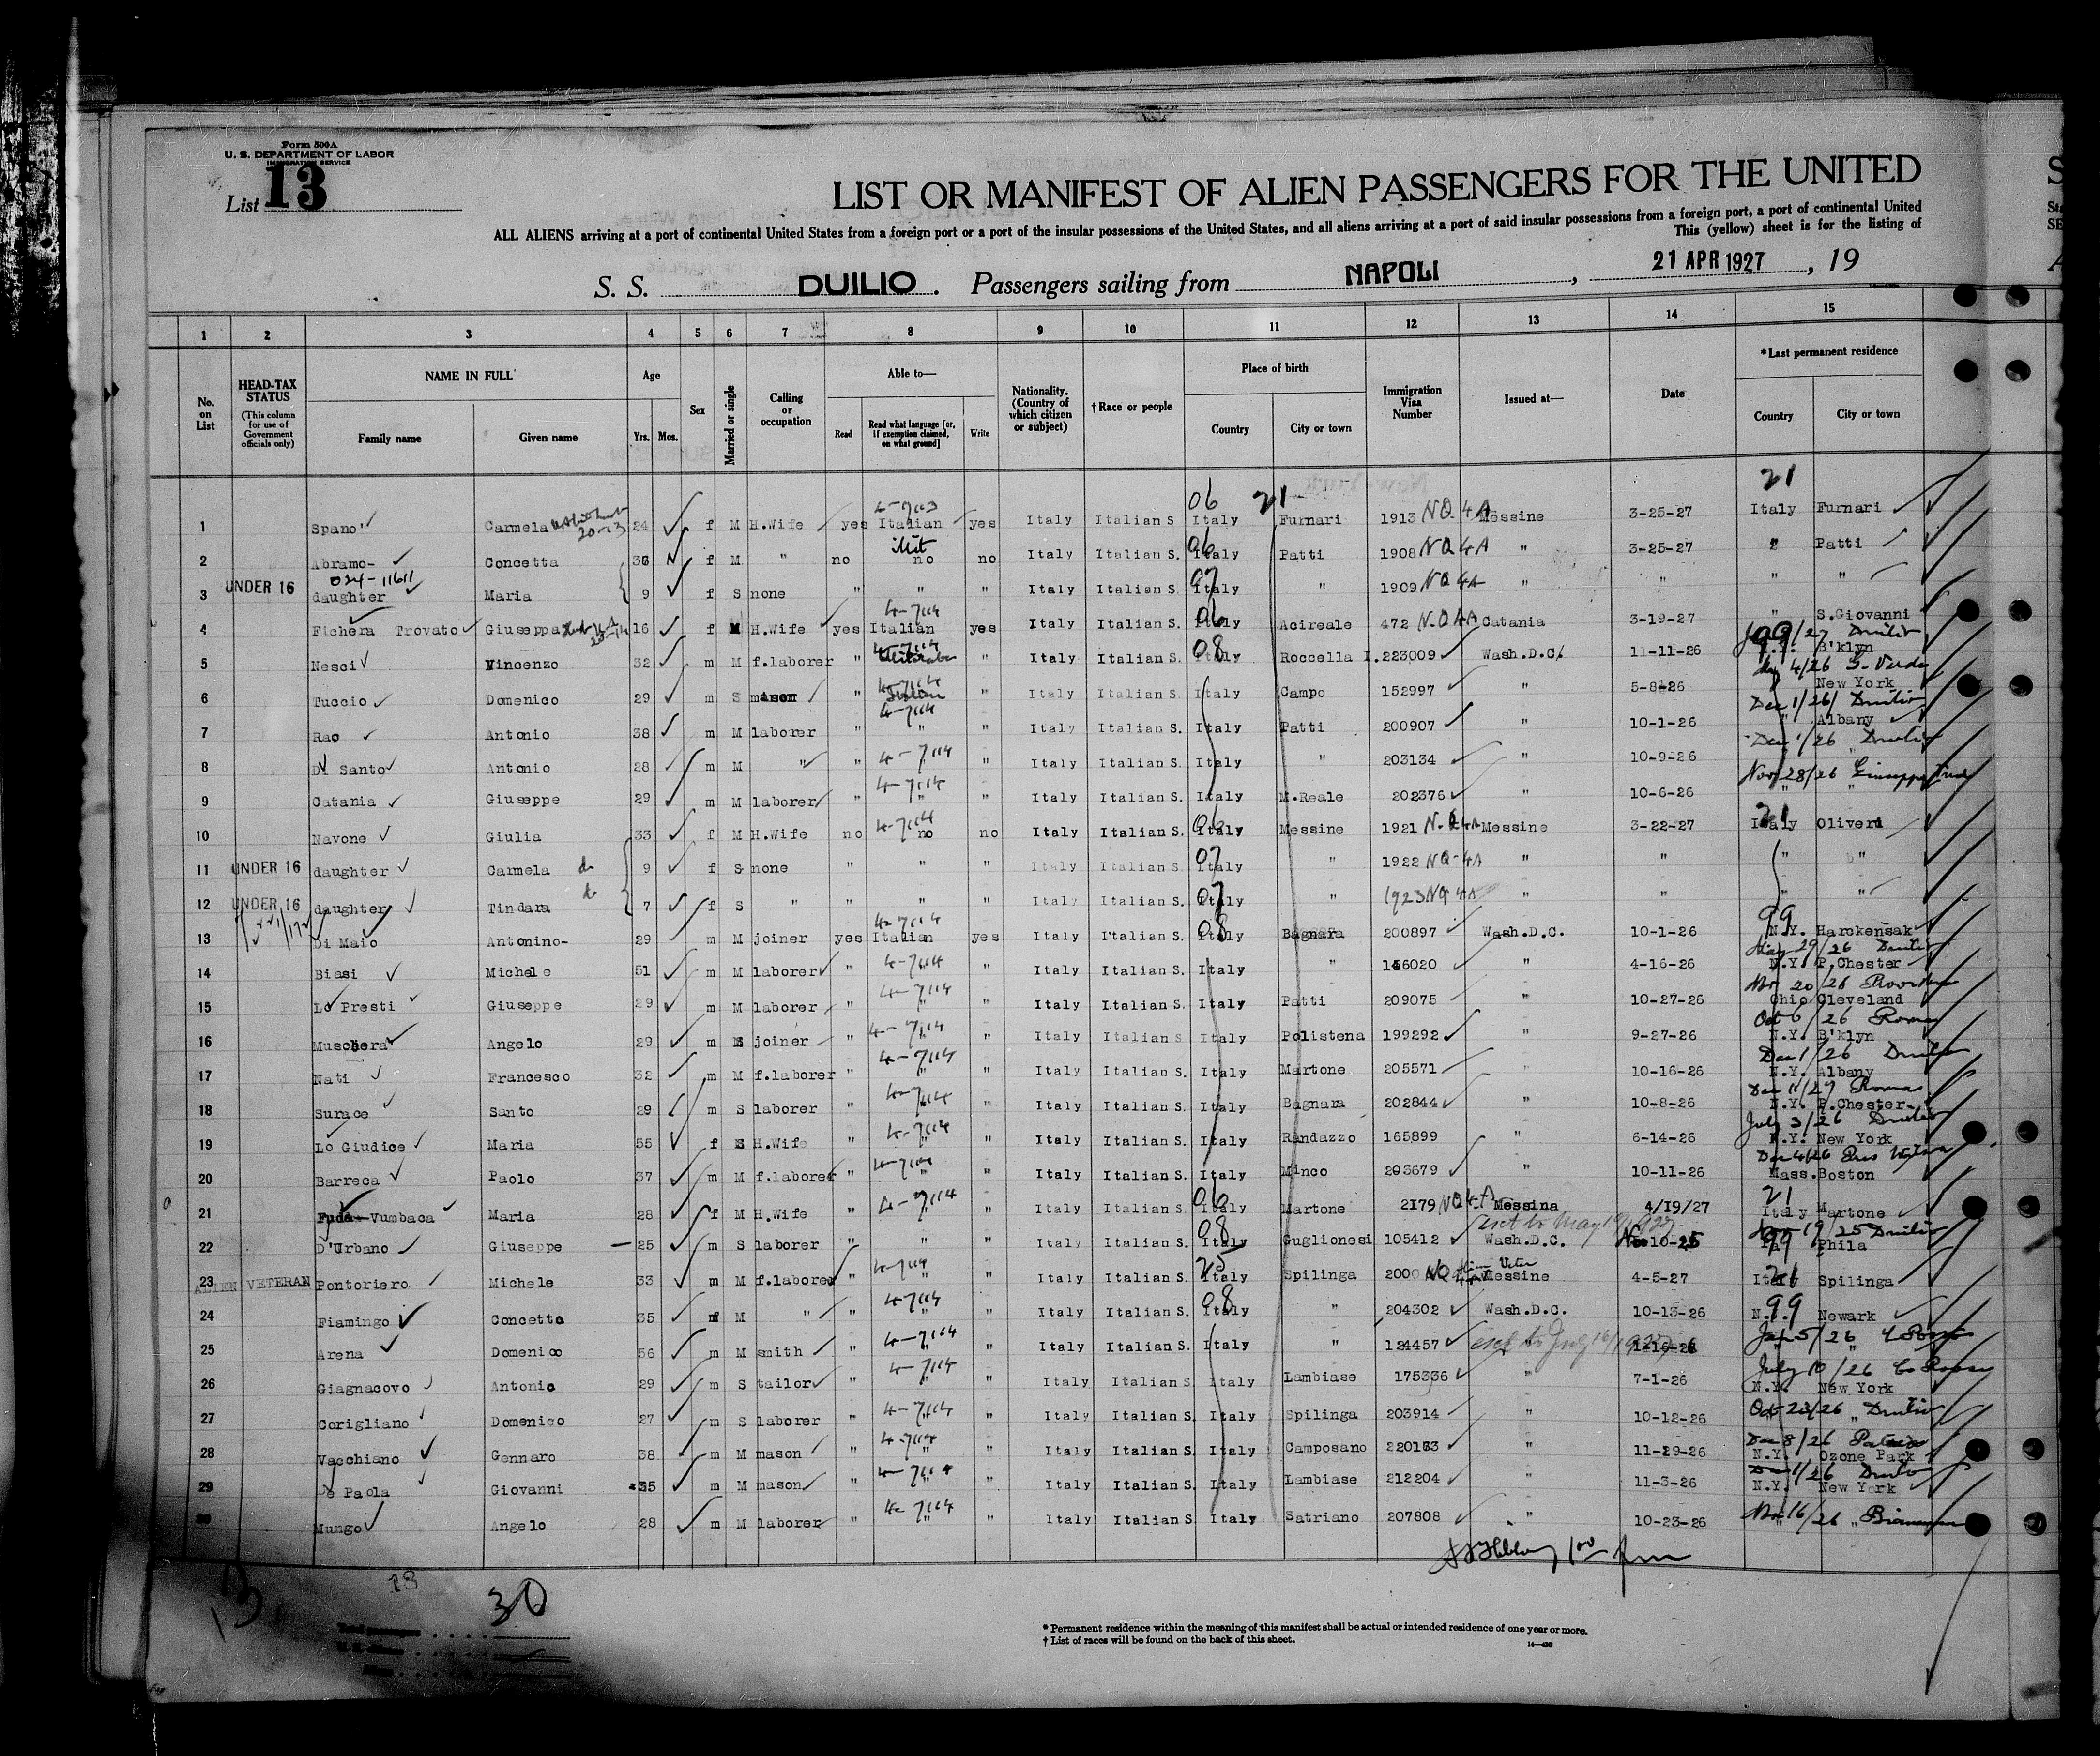 Form 500A
U. S. DEPARTMENT OF LABOR
IMMIGRATION SERVICE
List 13
LIST OR MANIFEST OF ALIEN PASSENGERS FOR THE UNITED
ALL ALIENS arriving at a port of continental United States from a foreign port or a port of the insular possessions of the United States, and all aliens arriving at a port of said insular possessions from a foreign port, a port of continental United
This (yellow) sheet is for the listing of
S. S. DUILIO. Passengers sailing from NAPOLI, 21 APR 1927, 19
1 2 3 4 5 6 7 8 9 10 11 12 13 14 15
No. on List
HEAD-TAX STATUS (This column for use of Government officials only)
NAME IN FULL
Family name Given name
Age
Yrs. Mos.
Sex
Married or single
Calling or occupation
Able to—
Read Read what language [or, if exemption claimed, on what ground] Write
Nationality. (Country of which citizen or subject)
†Race or people
Place of birth
Country City or town
Immigration Visa Number
Issued at—
Date
*Last permanent residence
Country City or town
06 21 21
1 Spano' Carmela 24 f M H.Wife yes Italian yes Italy Italian S Italy Furnari 1913 NQ 4A Messine 3-25-27 Italy Furnari
2 Abramo- Concetta 36 f M " no no no Italy Italian S. 06 Italy Patti 1908 NQ 4A " 3-25-27 " Patti
024-11611
3 UNDER 16 daughter Maria 9 f S none " " " Italy Italian S. 07 Italy " 1909 NQ 4A " " " "
4 Fichera Trovato Giuseppa 16 f M H.Wife yes Italian yes Italy Italian S. 06 Italy Acireale 472 N.Q 4A Catania 3-19-27 " S.Giovanni
5 Nesci Vincenzo 32 m M f.laborer " " Italy Italian S. 08 Italy Roccella I. 223009 Wash.D.C. 11-11-26 B'klyn
6 Tuccio Domenico 29 m S mason " Italian " Italy Italian S. Italy Campo 152997 " 5-8-26 New York
Dec 1/26 Duilio
7 Rao Antonio 38 m M laborer " " " Italy Italian S. Italy Patti 200907 " 10-1-26 " Albany
Dec 1/26 Duilio
8 Di Santo Antonio 28 m M " " " Italy Italian S. Italy " 203134 " 10-9-26 "
Nov 28/26 Giuseppe
9 Catania Giuseppe 29 m M laborer " " " Italy Italian S. Italy M.Reale 202376 " 10-6-26 " "
10 Navone Giulia 33 f M H.Wife no no no Italy Italian S. 06 Italy Messine 1921 N.Q 4A Messine 3-22-27 21 Italy Oliveri
11 UNDER 16 daughter Carmela 9 f S none " " " Italy Italian S. 07 Italy " 1922 NQ-4A " " " "
12 UNDER 16 daughter Tindara 7 f S " " " " Italy Italian S. 07 Italy " 1923 NQ 4A " " " "
13 Di Maio Antonino- 29 m M joiner yes Italian yes Italy Italian S. 08 Italy Bagnara 200897 Wash.D.C. 10-1-26 99 N.Y. Harckensak
14 Biasi Michele 51 m M laborer " " Italy Italian S. Italy " 146020 " 4-16-26 N.Y. P.Chester
15 Lo Presti Giuseppe 29 m M laborer " " " Italy Italian S. Italy Patti 209075 " 10-27-26 Ohio Cleveland
Oct 6/26 Roma
16 Muschera Angelo 29 m S joiner " " " Italy Italian S. Italy Polistena 199292 " 9-27-26 N.Y. B'klyn
Dec 1/26 Duilio
17 Nati Francesco 32 m M f.laborer " " " Italy Italian S. Italy Martone 205571 " 10-16-26 N.Y. Albany
18 Surace Santo 29 m S laborer " " Italy Italian S. Italy Bagnara 202844 " 10-8-26 N.Y. P.Chester
July 3/26 Duilio
19 Lo Giudice Maria 55 f S H.Wife " " " Italy Italian S. Italy Randazzo 165899 " 6-14-26 N.Y. New York
20 Barreca Paolo 37 m M f.laborer " " Italy Italian S. Italy Minco 203679 " 10-11-26 Mass. Boston
21 Fuda-Vumbaca Maria 28 f M H.Wife " " Italy Italian S. 06 Italy Martone 2179 NQ 4-A Messina 4/19/27 21 Italy Martone
22 D'Urbano Giuseppe 25 m S laborer " " " Italy Italian S. 08 Italy Guglionesi 105412 Wash.D.C. 10-25 99 Phila
23 ALIEN VETERAN Pontoriero Michele 33 m M f.laborer " " " Italy Italian S. 25 Italy Spilinga 2000 Messine 4-5-27 21 Italy Spilinga
24 Fiamingo Concetto 35 m M " " " Italy Italian S. 08 Italy " 204302 Wash.D.C. 10-13-26 99 Newark
25 Arena Domenico 56 m M smith " " " Italy Italian S. Italy " 124457 "
July 10/26
26 Giagnacovo Antonio 29 m S tailor " " " Italy Italian S. Italy Lambiase 175336 " 7-1-26 N.Y. New York
Oct 23/26 Duilio
27 Corigliano Domenico 27 m S laborer " " " Italy Italian S. Italy Spilinga 203914 " 10-12-26 " "
28 Vacchiano Gennaro 38 m M mason " " " Italy Italian S. Italy Camposano 220163 " 11-29-26 N.Y. Ozone Park
Dec 1/26 Duilio
29 De Paola Giovanni 35 m M mason " " " Italy Italian S. Italy Lambiase 212204 " 11-3-26 N.Y. New York
30 Mungo Angelo 28 m M laborer " " " Italy Italian S. Italy Satriano 207808 " 10-23-26 Nov 16/26
13
30
Total passengers
* Permanent residence within the meaning of this manifest shall be actual or intended residence of one year or more.
† List of races will be found on the back of this sheet.